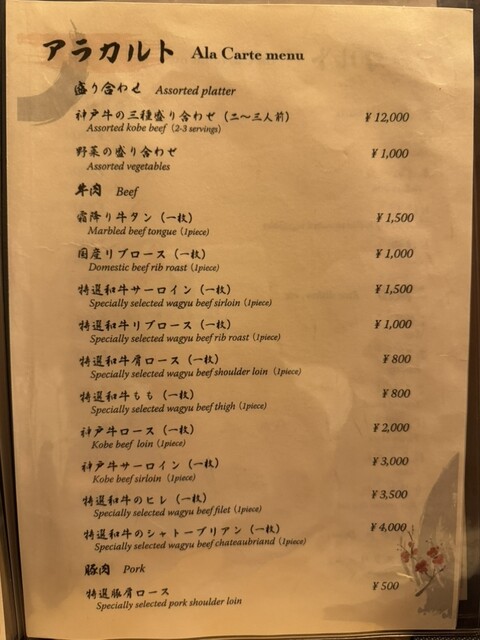 アラカルト Ala Carte menu
盛り合わせ Assorted platter
神戸牛の三種盛り合わせ (二〜三人前) ¥12,000
Assorted kobe beef (2-3 servings)
野菜の盛り合わせ ¥1,000
Assorted vegetables
牛肉 Beef
霜降り牛タン (一枚) ¥1,500
Marbled beef tongue (1piece)
国産リブロース (一枚) ¥1,000
Domestic beef rib roast (1piece)
特選和牛サーロイン (一枚) ¥1,500
Specially selected wagyu beef sirloin (1piece)
特選和牛リブロース (一枚) ¥1,000
Specially selected wagyu beef rib roast (1piece)
特選和牛肩ロース (一枚) ¥800
Specially selected wagyu beef shoulder loin (1piece)
特選和牛もも (一枚) ¥800
Specially selected wagyu beef thigh (1piece)
神戸牛ロース (一枚) ¥2,000
Kobe beef loin (1piece)
神戸牛サーロイン (一枚) ¥3,000
Kobe beef sirloin (1piece)
特選和牛のヒレ (一枚) ¥3,500
Specially selected wagyu beef filet (1piece)
特選和牛のシャトーブリアン (一枚) ¥4,000
Specially selected wagyu beef chateaubriand (1piece)
豚肉 Pork
特選豚肩ロース ¥500
Specially selected pork shoulder loin